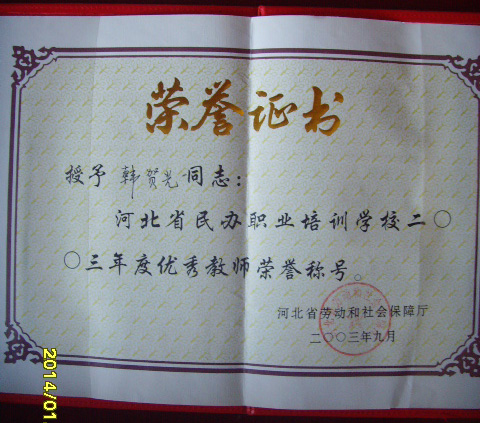 荣誉证书
授予 韩贺先 同志：
河北省民办职业培训学校二〇
〇三年度优秀教师荣誉称号。
河北省劳动和社会保障厅
二〇〇三年九月
2014/01